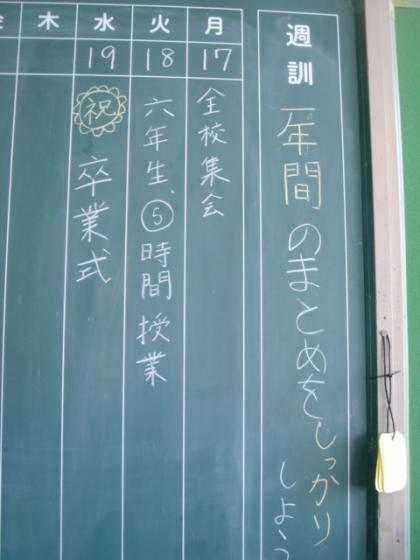 週訓
一年間のまとめをしっかり
しよう
月
17
全校集会
火
18
六年生、⑤時間授業
水
19
祝
卒業式
木